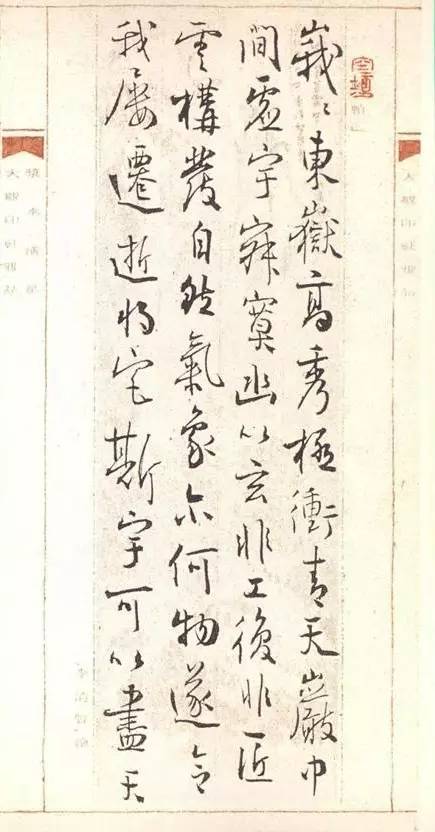 峩〻東嶽高秀極衝青天巖中
間虛宇寂寞幽以玄非工復非匠
雲構發自然氣象尒何物遂令
我屢遷逝將宅斯宇可以盡天